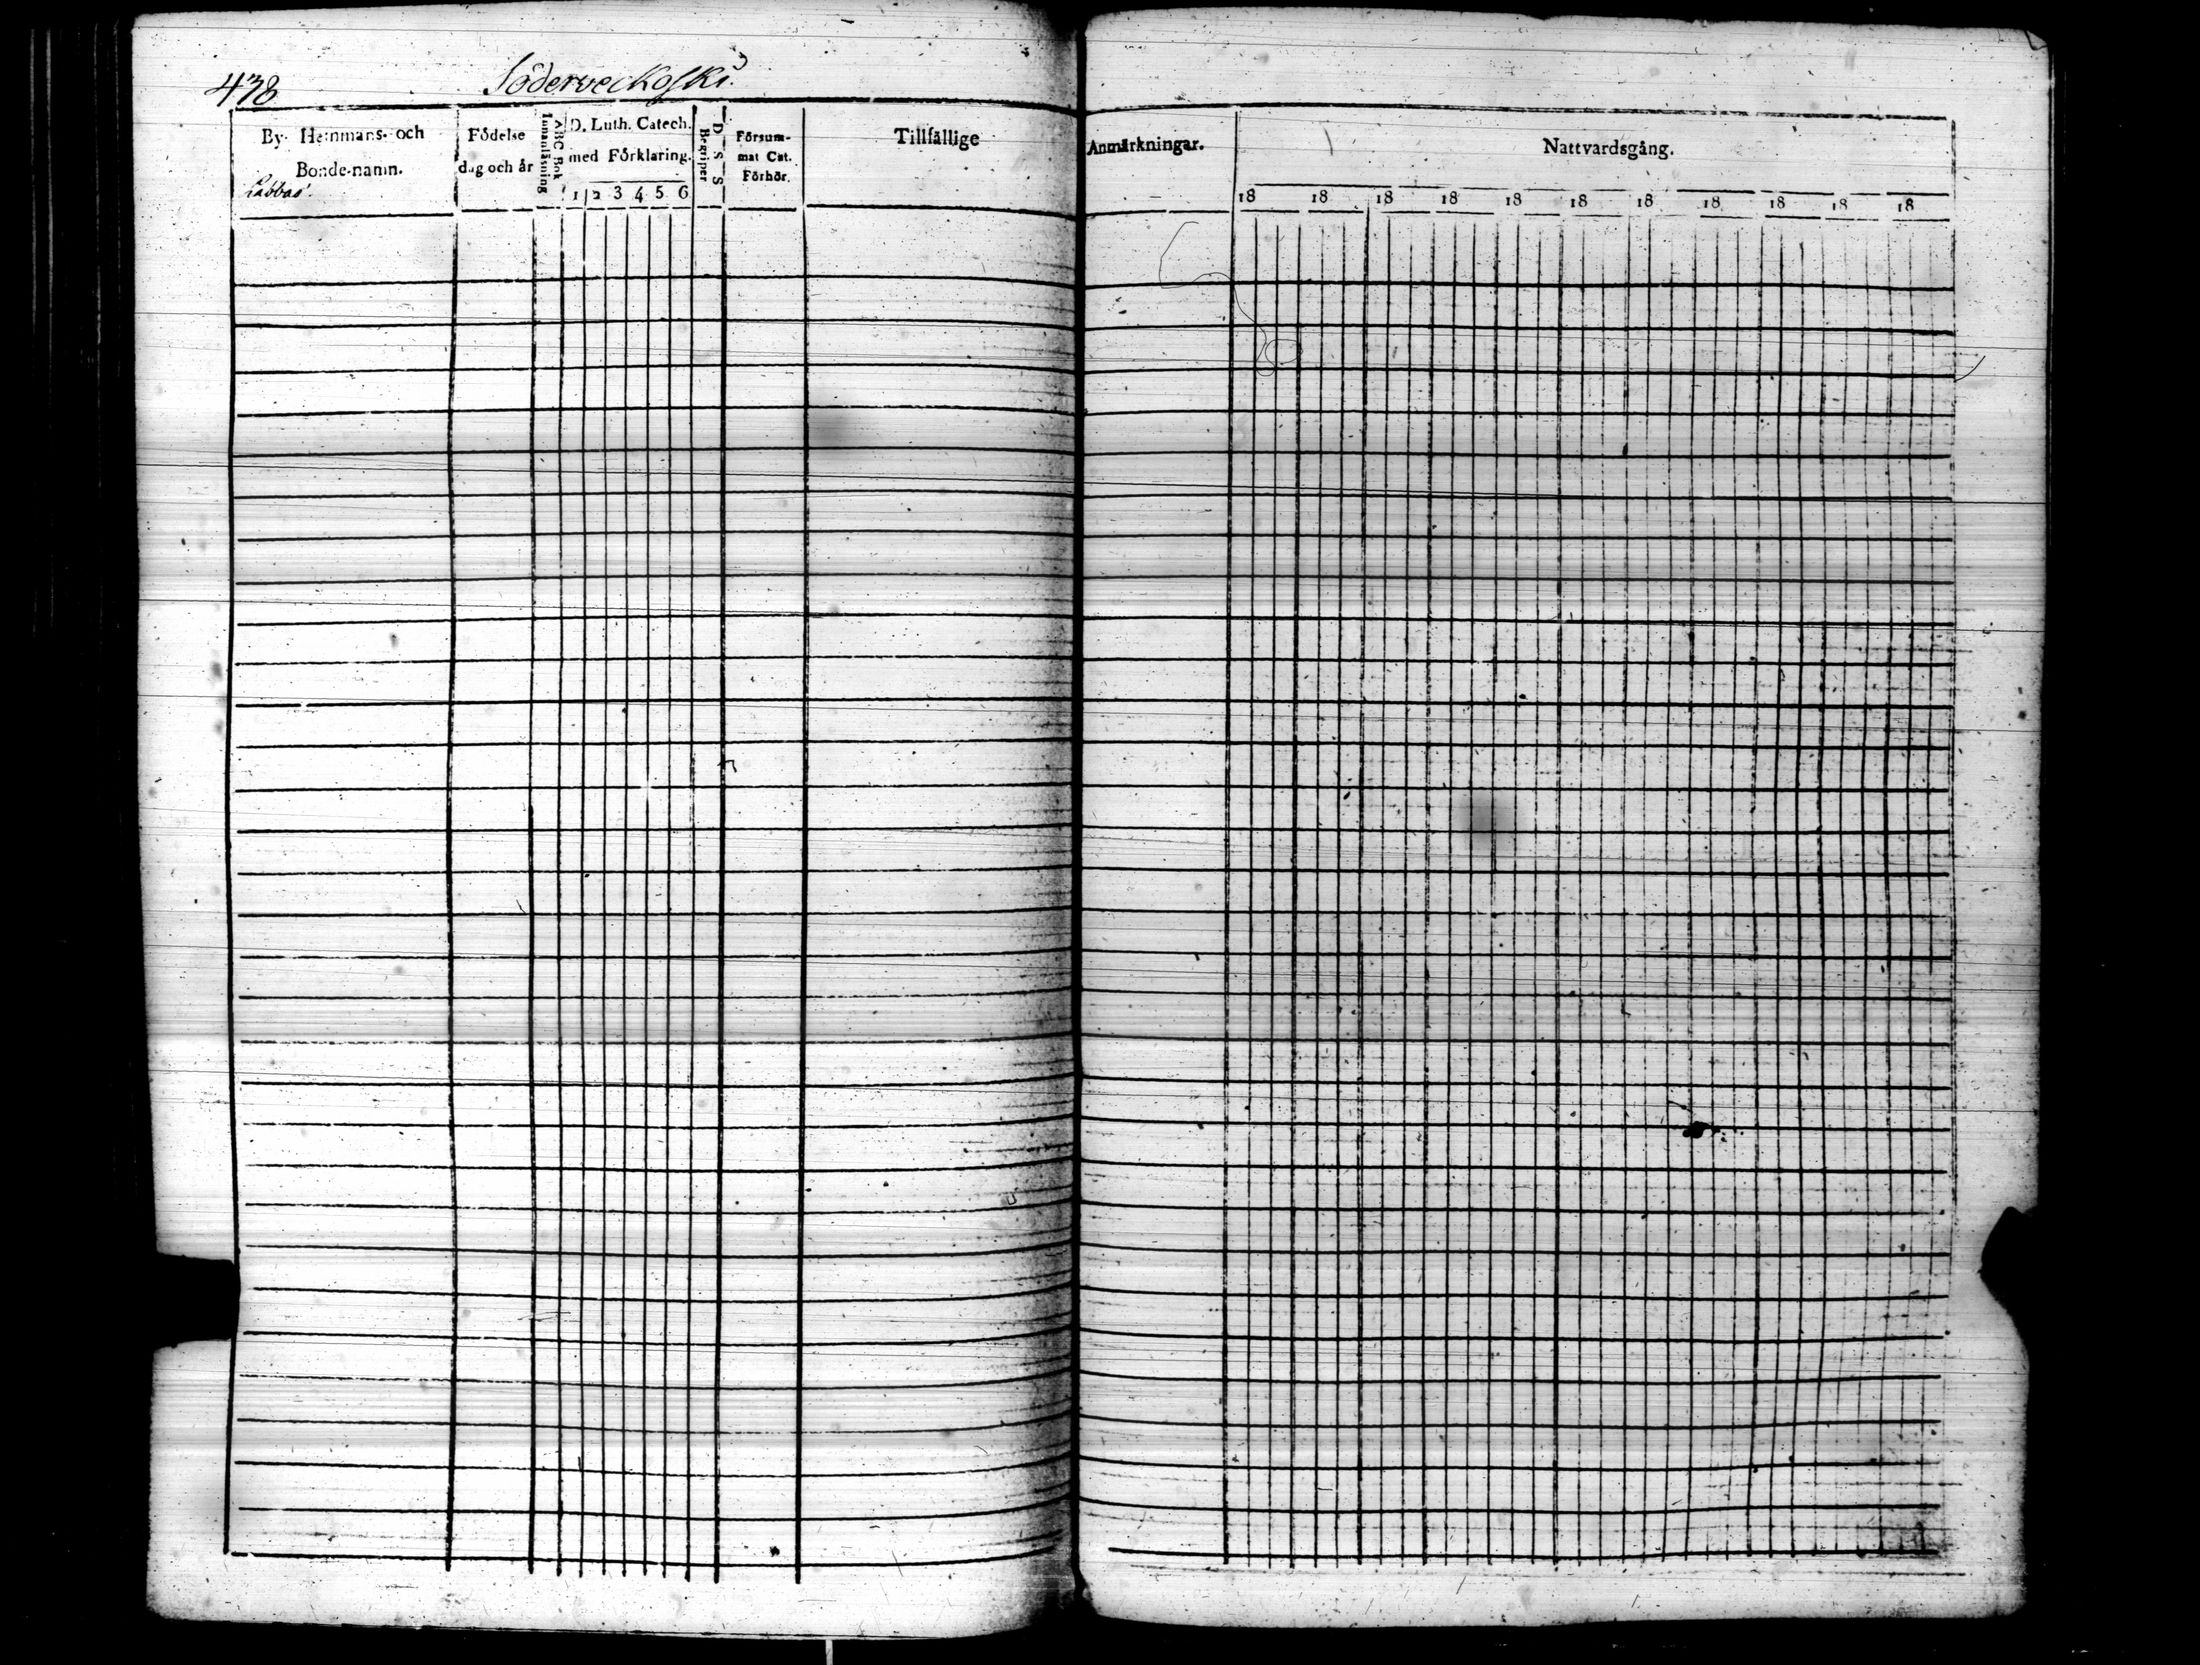 438
Söderveckoski.
By- Hemmans- och
Bonde-namn.
Labbas.
Födelse
dag och år
ABC Bok
Innanläsning
D. Luth. Catech.
med Förklaring.
1 2 3 4 5 6
D S S
Begriper
Försum-
mat Cat.
Förhör.
Tillfällige
Anmärkningar.
Nattvardsgång.
18 18 18 18 18 18 18 18 18 18 18